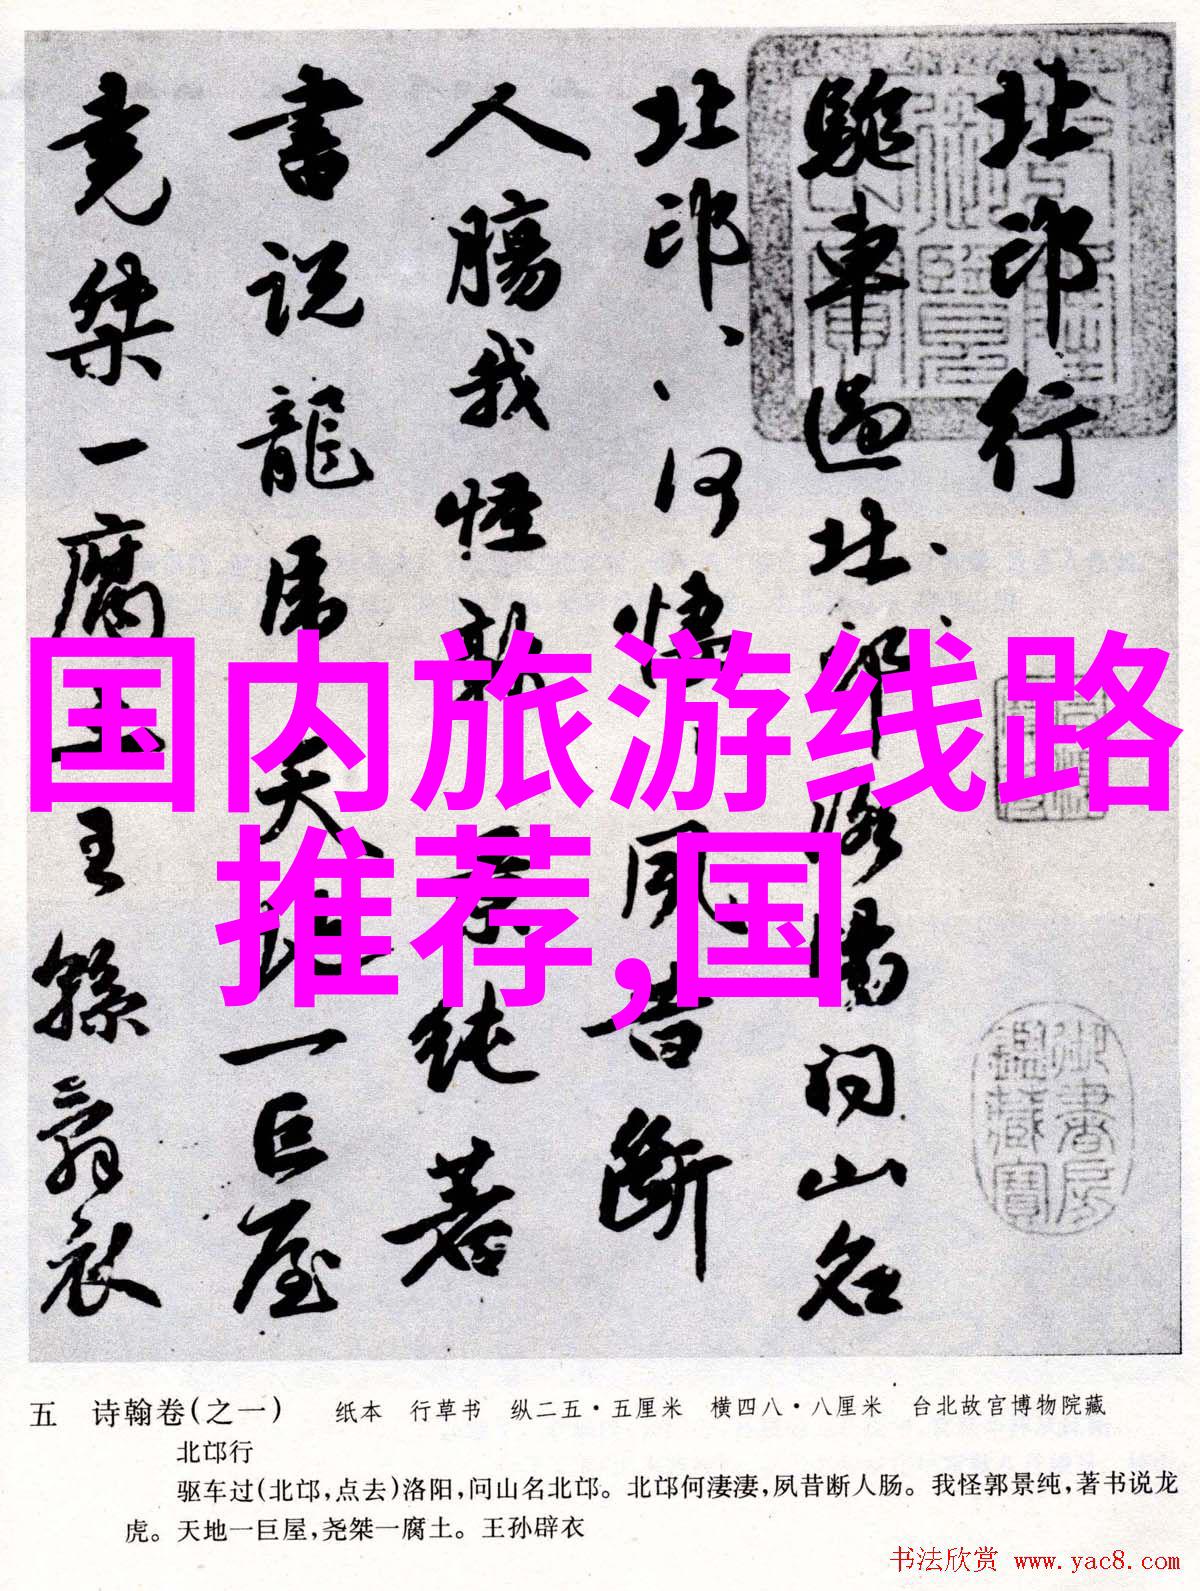 北邙行
駈車過北邙洛陽问山名
北邙、、何悽、夙昔斷
人腸我怪郭景纯著
書说龍虎天地一巨屋
尭桀一腐土王孫辟衣
御書房鑑藏寶
国内旅游线路
推荐,国
五 诗翰卷(之一) 纸本 行草书 纵二五·五厘米 横四八·八厘米 台北故宫博物院藏
北邙行
驱车过(北邙,点去)洛阳,问山名北邙。北邙何凄凄,夙昔断人肠。我怪郭景纯,著书说龙
虎。天地一巨屋,尧桀一腐土。王孙辟衣
书法欣赏 www.yac8.com